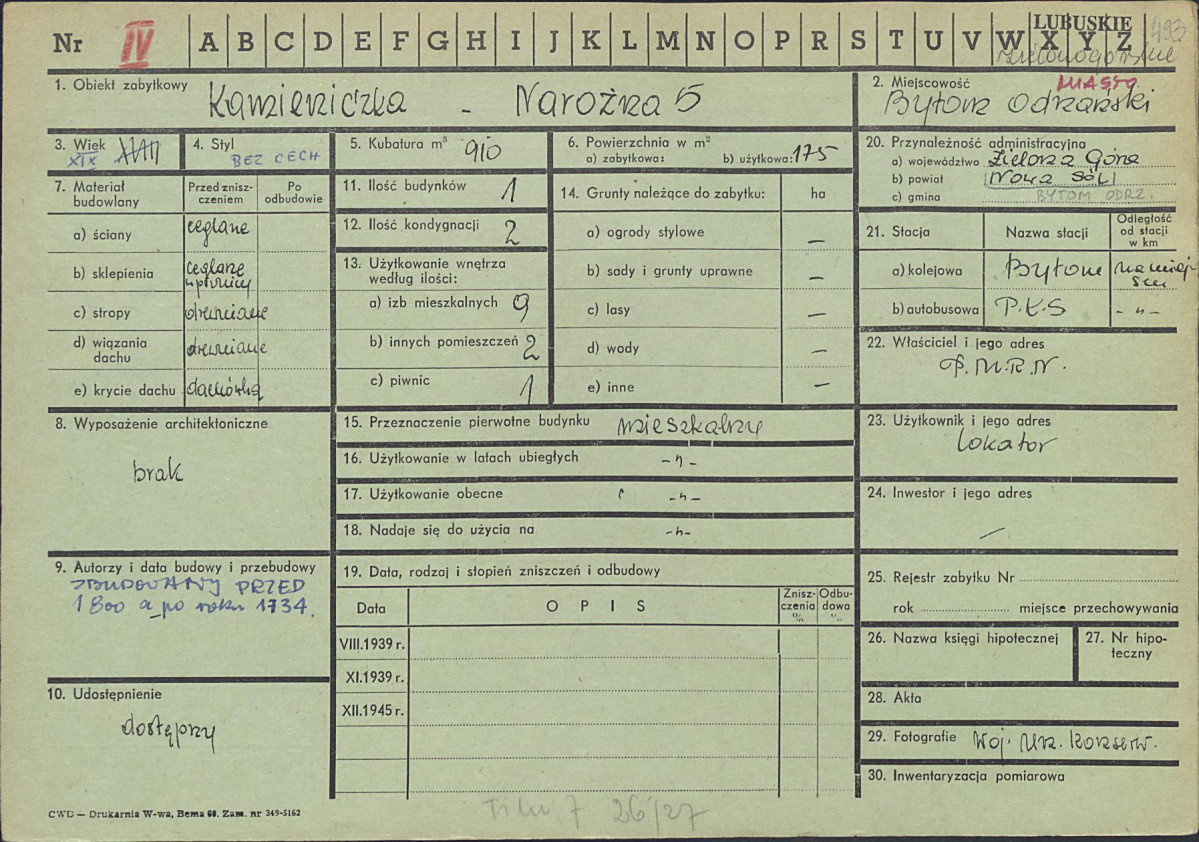 Nr IV A B C D E F G H I J K L M N O P R S T U V W X Y Z LUBUSKIE 493
Zielonogórskie
1. Obiekt zabytkowy Kamieniczka - Narożna 5
2. Miejscowość MIASTO
Bytom Odrzański
3. Wiek XVIII
XIX
4. Styl
BEZ CECH
5. Kubatura m³ 910
6. Powierzchnia w m²
a) zabytkowa: b) użytkowa: 175
7. Materiał budowlany
Przed znisz-
czeniem
Po
odbudowie
a) ściany ceglane
b) sklepienia ceglane
w piwnicy
c) stropy drewniane
d) wiązania
dachu drewniane
e) krycie dachu dachówka
8. Wyposażenie architektoniczne
brak
9. Autorzy i data budowy i przebudowy
ZBUDOWANY PRZED
1800 a po roku 1734.
10. Udostępnienie
dostępny
11. Ilość budynków 1
12. Ilość kondygnacji 2
13. Użytkowanie wnętrza
według ilości:
a) izb mieszkalnych 9
b) innych pomieszczeń 2
c) piwnic 1
14. Grunty należące do zabytku: ha
a) ogrody stylowe —
b) sady i grunty uprawne —
c) lasy —
d) wody —
e) inne —
15. Przeznaczenie pierwotne budynku mieszkalny
16. Użytkowanie w latach ubiegłych -"-
17. Użytkowanie obecne -"-
18. Nadaje się do użycia na -"-
19. Data, rodzaj i stopień zniszczeń i odbudowy
Data OPIS
Znisz-
czenia
%
Odbu-
dowa
%
VIII.1939 r.
XI.1939 r.
XII.1945 r.
20. Przynależność administracyjna
a) województwo Zielona Góra
b) powiat Nowa Sól
c) gmina BYTOM ODRZ.
21. Stacja Nazwa stacji
Odległość
od stacji
w km
a) kolejowa Bytom na miej-
scu
b) autobusowa P.K.S -"-
22. Właściciel i jego adres
P.M.R.N.
23. Użytkownik i jego adres
lokator
24. Inwestor i jego adres
—
25. Rejestr zabytku Nr
rok miejsce przechowywania
26. Nazwa księgi hipotecznej
27. Nr hipo-
teczny
28. Akta
29. Fotografie Woj. Urz. Konserw.
30. Inwentaryzacja pomiarowa
CWD — Drukarnia W-wa, Bema 60. Zam. nr 349-5162
7 26/27